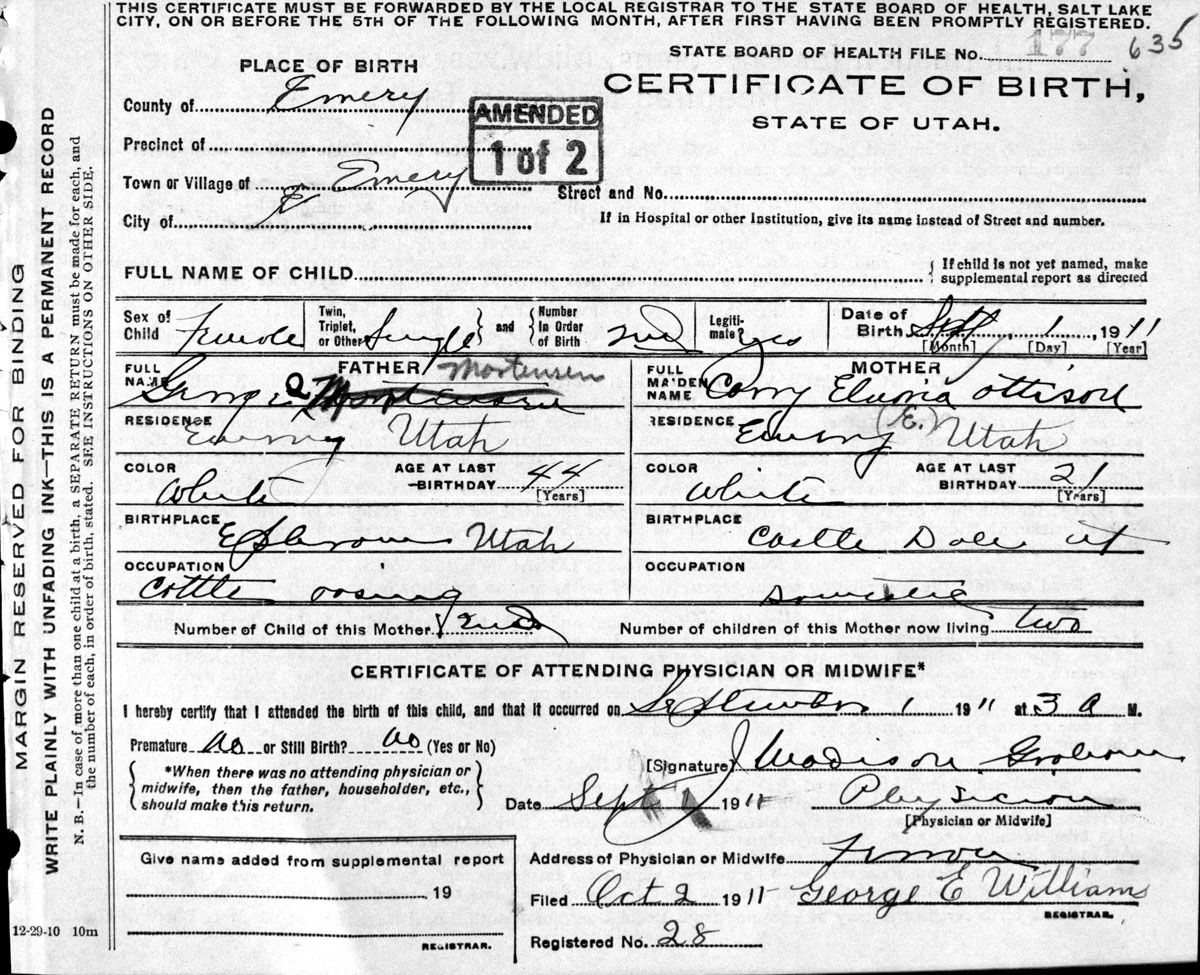 THIS CERTIFICATE MUST BE FORWARDED BY THE LOCAL REGISTRAR TO THE STATE BOARD OF HEALTH, SALT LAKE
CITY, ON OR BEFORE THE 5TH OF THE FOLLOWING MONTH, AFTER FIRST HAVING BEEN PROMPTLY REGISTERED.
MARGIN RESERVED FOR BINDING
WRITE PLAINLY WITH UNFADING INK—THIS IS A PERMANENT RECORD
N. B.—In case of more than one child at a birth, a SEPARATE RETURN must be made for each, and
the number of each, in order of birth, stated. SEE INSTRUCTIONS ON OTHER SIDE.
STATE BOARD OF HEALTH FILE No. 177 635
PLACE OF BIRTH
CERTIFICATE OF BIRTH,
STATE OF UTAH.
County of Emery
AMENDED
1 of 2
Precinct of
Town or Village of Emery
Street and No.
City of X
If in Hospital or other Institution, give its name instead of Street and number.
FULL NAME OF CHILD
If child is not yet named, make
supplemental report as directed
Sex of Child Female
Twin, Triplet, or Other Single and Number In Order of Birth 2nd
Legitimate? yes
Date of Birth Sept 1 1911
[Month] [Day] [Year]
FATHER
FULL NAME George Mortensen
MOTHER
FULL MAIDEN NAME Ottison
RESIDENCE Emery Utah
RESIDENCE Emery (E.) Utah
COLOR White
AGE AT LAST BIRTHDAY 44
[Years]
COLOR White
AGE AT LAST BIRTHDAY 21
[Years]
BIRTHPLACE Ephraim Utah
BIRTHPLACE Castle Dale ut
OCCUPATION Cottle
OCCUPATION Domestic
Number of Child of this Mother 2nd
Number of children of this Mother now living two
CERTIFICATE OF ATTENDING PHYSICIAN OR MIDWIFE*
I hereby certify that I attended the birth of this child, and that it occurred on September 1 1911 at 3 a M.
Premature No or Still Birth? No (Yes or No)
*When there was no attending physician or
midwife, then the father, householder, etc.,
should make this return.
[Signature] J Madison Graham
Date Sept 1 1911 Physician
[Physician or Midwife]
Give name added from supplemental report
19
REGISTRAR.
Address of Physician or Midwife Ferron
Filed Oct 2 1911 George E Williams
REGISTRAR.
Registered No. 28
12-29-10 10m